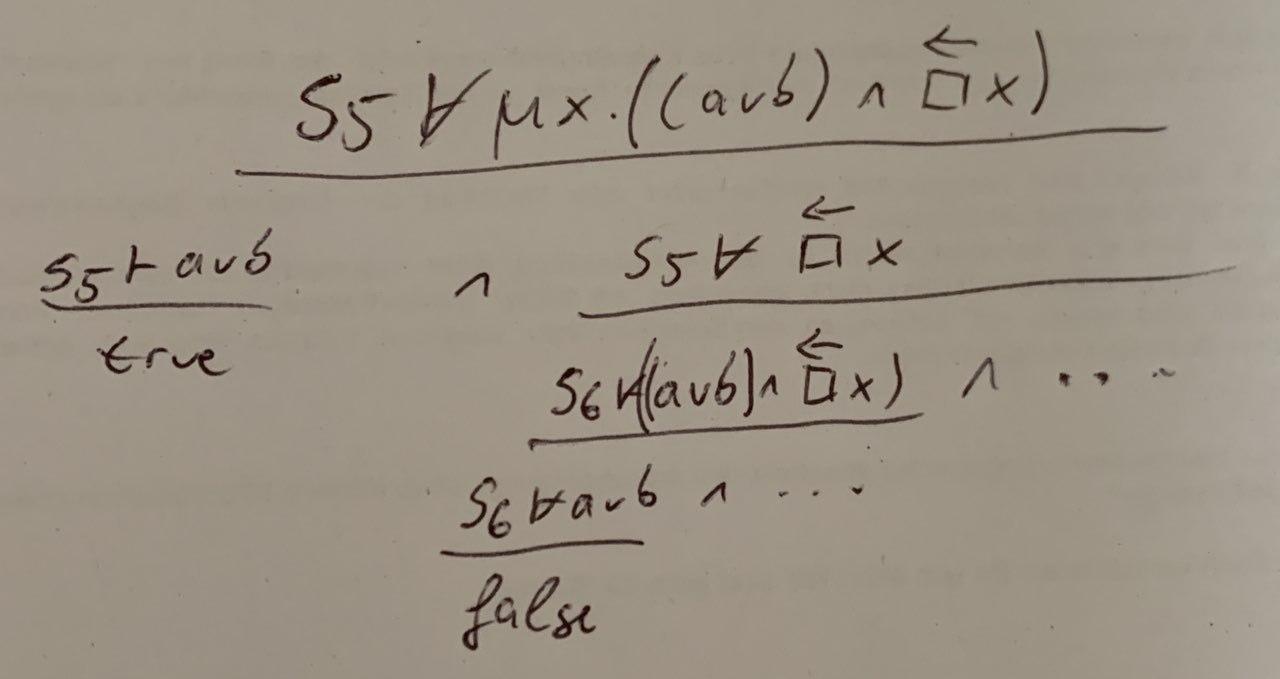 S₅ ⊬ μx.((a∨b) ∧ □⃖x)
S₅ ⊢ a∨b ∧ S₅ ⊬ □⃖x
true S₆ ⊬ ((a∨b) ∧ □⃖x) ∧ ...
S₆ ⊬ a∨b ∧ ...
false